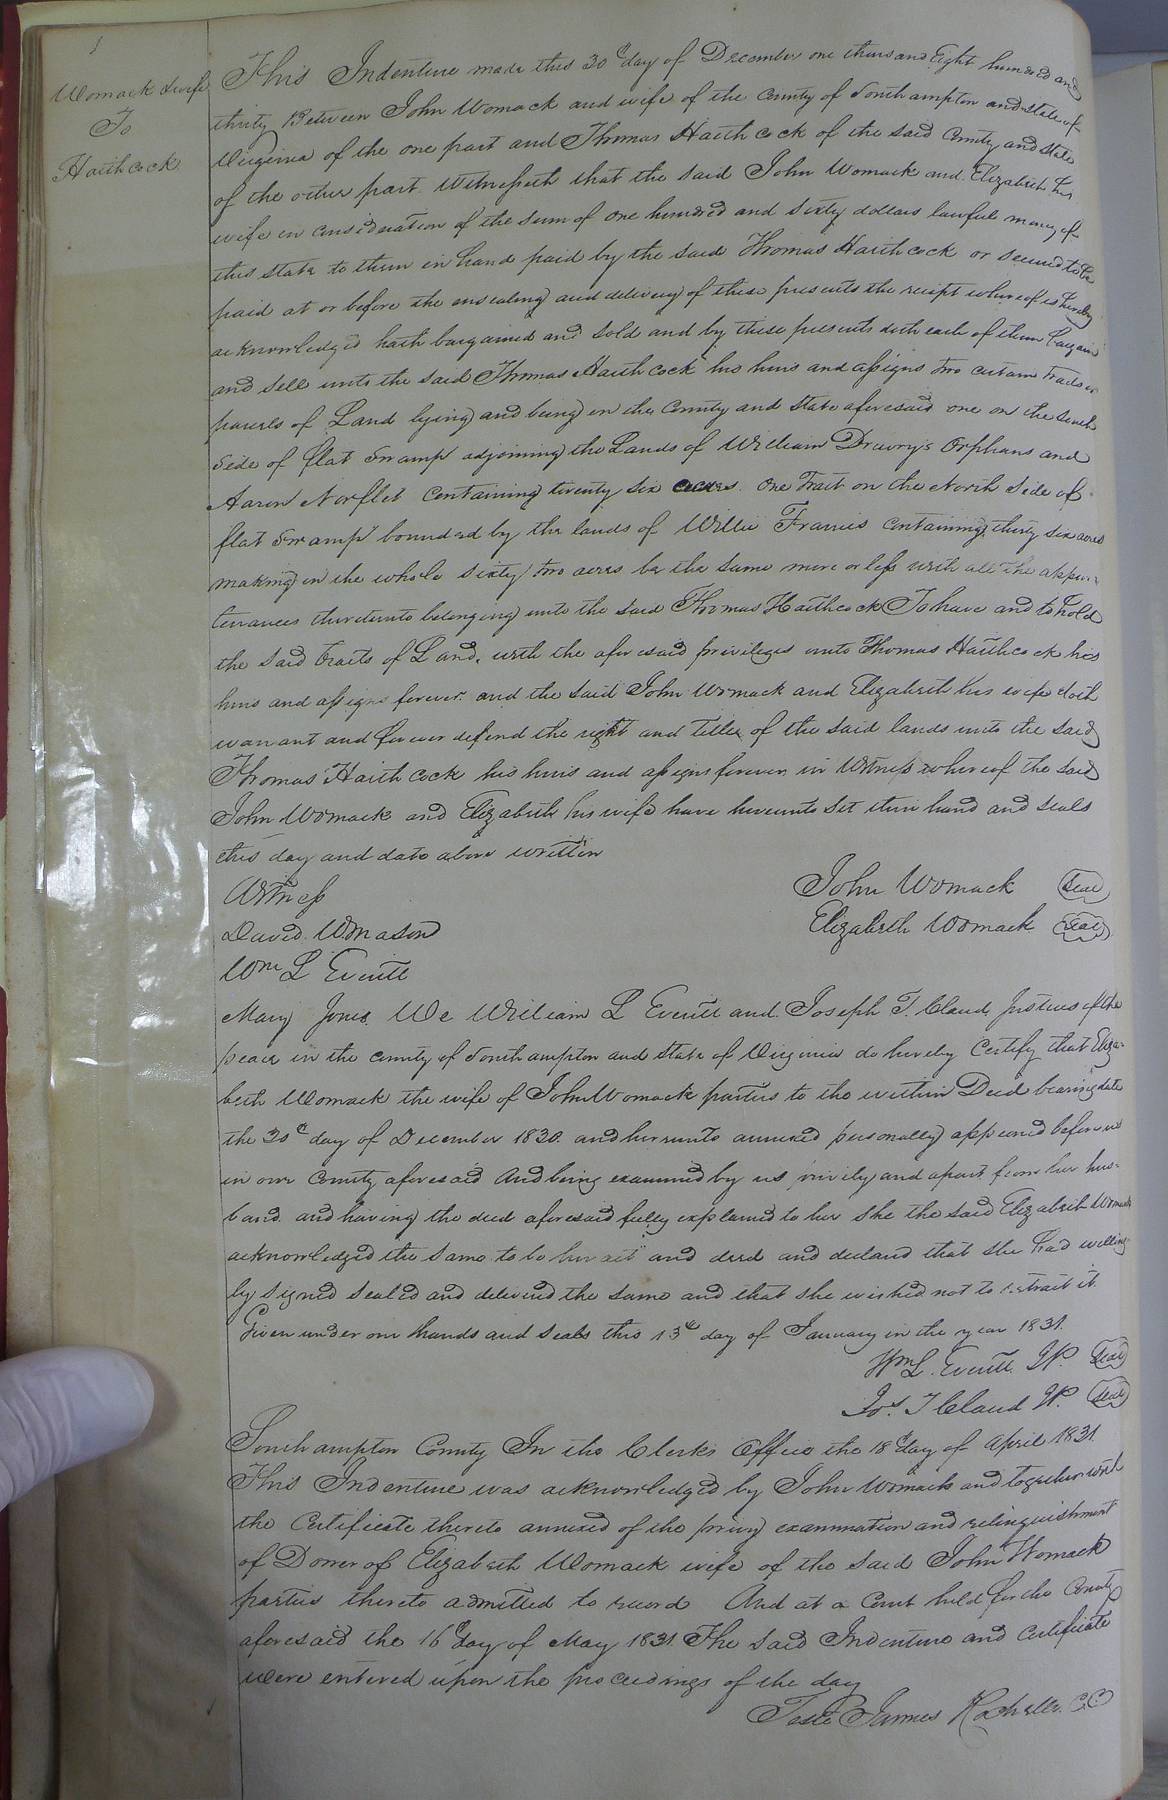 1
Womack & wife
To
Haithcock
This Indenture made this 30th day of December one thousand Eight hundred and
thirty Between John Womack and wife of the County of Southampton and state of
Virginia of the one part and Thomas Haithcock of the said County and state
of the other part. Witnesseth that the said John Womack and Elizabeth his
wife in consideration of the sum of one hundred and sixty dollars lawful money of
this state to them in hand paid by the said Thomas Haithcock or secured to be
paid at or before the ensealing and delivery of these presents the receipt whereof is hereby
acknowledged hath bargained and sold and by these presents doth each of them bargain
and sell unto the said Thomas Haithcock his heirs and assigns two certain Tracts or
parcels of Land lying and being in the County and state aforesaid one on the South
side of flat Swamp adjoining the Lands of William Drewry's Orphans and
Aaron Norflet Containing twenty six acres. One Tract on the North side of
flat Swamp bounded by the lands of Willie Francis Containing thirty six acres
making in the whole sixty two acres be the same more or less with all the appur-
tenances thereunto belonging unto the said Thomas Haithcock To have and to hold
the said tracts of Land, with the aforesaid privileges unto Thomas Haithcock his
heirs and assigns forever. and the said John Womack and Elizabeth his wife doth
warrant and forever defend the right and title of the said lands unto the said
Thomas Haithcock his heirs and assigns forever in Witness whereof the said
John Womack and Elizabeth his wife have hereunto set their hand and seals
this day and date above written
Witness
John Womack (Seal)
David Womason
Elizabeth Womack (Seal)
Wm L Everitt
Mary Jones. We William L Everitt and Joseph T. Claud Justices of the
peace in the county of Southampton and state of Virginia do hereby Certify that Eliza-
beth Womack the wife of John Womack parties to the within Deed bearing date
the 30th day of December 1830. and hereunto annexed personally appeared before us
in our County aforesaid And being examined by us privily and apart from her hus-
band. and having the deed aforesaid fully explained to her she the said Elizabeth Womack
acknowledged the same to be her act and deed and declared that she had willing-
ly signed sealed and delivered the same and that she wished not to retract it
Given under our hands and seals this 13th day of January in the year 1831.
Wm L. Everitt. JP. (Seal)
Jos. T Claud JP. (Seal)
Southampton County In the Clerks Office the 18th day of April 1831.
This Indenture was acknowledged by John Womack and together with
the Certificate thereto annexed of the privy examination and relinquishment
of Dower of Elizabeth Womack wife of the said John Womack
parties thereto admitted to record And at a Court held for the County
aforesaid the 16th day of May 1831. The said Indenture and Certificate
were entered upon the proceedings of the day
Teste James Rochelle. CC